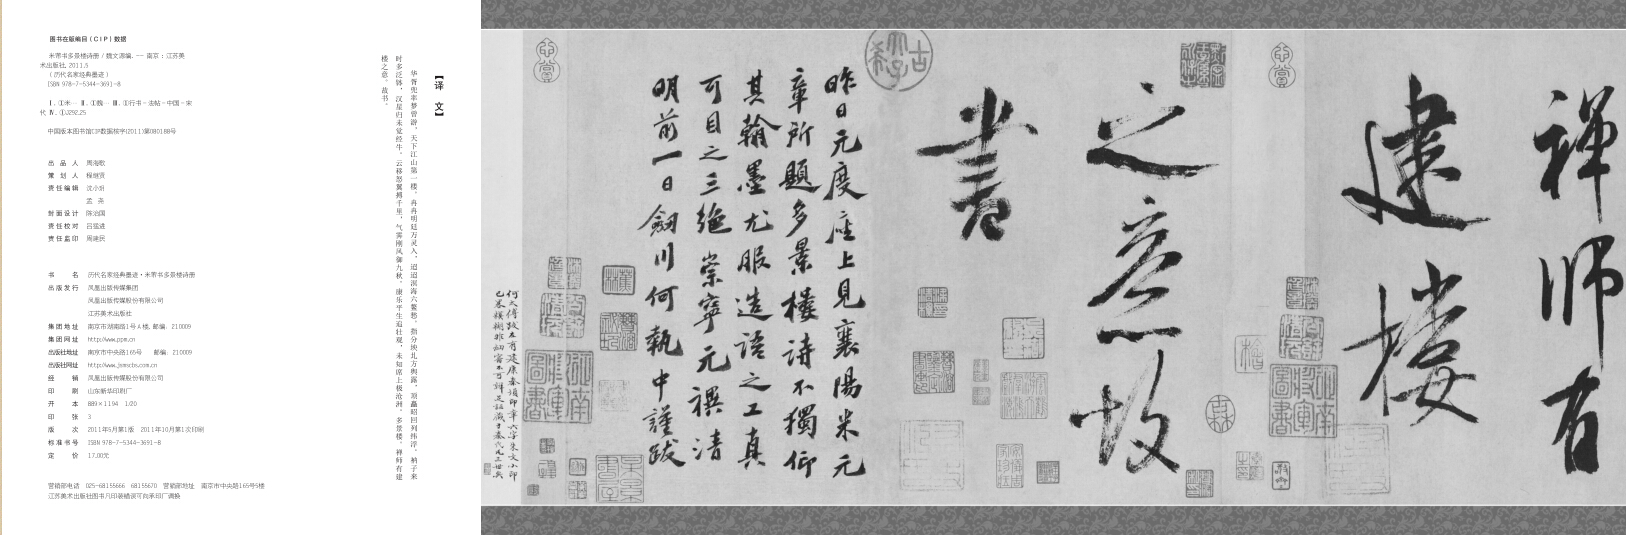 图书在版编目（CIP）数据
米芾书多景楼诗册 / 魏文源编. -- 南京 : 江苏美
术出版社, 2011.5
（历代名家经典墨迹）
ISBN 978-7-5344-3691-8
Ⅰ. ①米… Ⅱ. ①魏… Ⅲ. ①行书-法帖-中国-宋
代 Ⅳ. ①J292.25
中国版本图书馆CIP数据核字(2011)第080188号
出品人 周海歌
策划人 程继贤
责任编辑 沈小玥
孟 尧
封面设计 陈治国
责任校对 吕猛进
责任监印 周建民
书名 历代名家经典墨迹·米芾书多景楼诗册
出版发行 凤凰出版传媒集团
凤凰出版传媒股份有限公司
江苏美术出版社
集团地址 南京市湖南路1号A楼, 邮编: 210009
集团网址 http://www.ppm.cn
出版社地址 南京市中央路165号 邮编: 210009
出版社网址 http://www.jsmscbs.com.cn
经销 凤凰出版传媒股份有限公司
印刷 山东新华印刷厂
开本 889×1194 1/20
印张 3
版次 2011年5月第1版 2011年10月第1次印刷
标准书号 ISBN 978-7-5344-3691-8
定价 17.00元
营销部电话 025-68155666 68155670 营销部地址 南京市中央路165号5楼
江苏美术出版社图书凡印装错误可向承印厂调换
【译 文】
华胥兜率梦曾游，天下江山第一楼。冉冉明廷万灵入，迢迢溟海六鳌愁。指分块北方舆露，顶矗昭回列纬浮。衲子来
时多泛钵，汉星归未觉经牛。云移怒翼搏千里，气霁刚风御九秋。康乐平生追壮观，未知席上极沧洲。多景楼。禅师有建
楼之意，故书。
禅师有
建楼
之意故
书
昨日元度座上見襄陽米元
章所題多景樓詩不獨仰
其翰墨尤服造語之工真
可目之三绝崇寧元禩清
明前一日劒川何執中謹跋